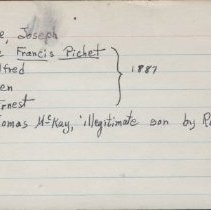 e, Joseph
e Francis Pichet
lfred
en 1887
rnest
omas McKay, illegitimate son by R